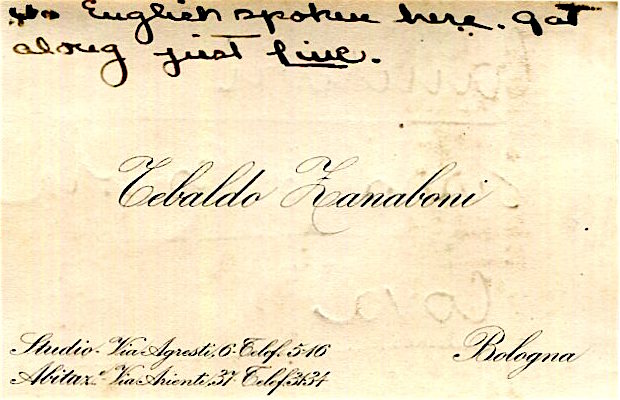 no English spoken here. Got
along just fine.
Tebaldo Zanaboni
Studio. Via Agresti, 6. Telef. 5-16
Bologna
Abitaz.e Via Arienti, 37 Telef. 31-34